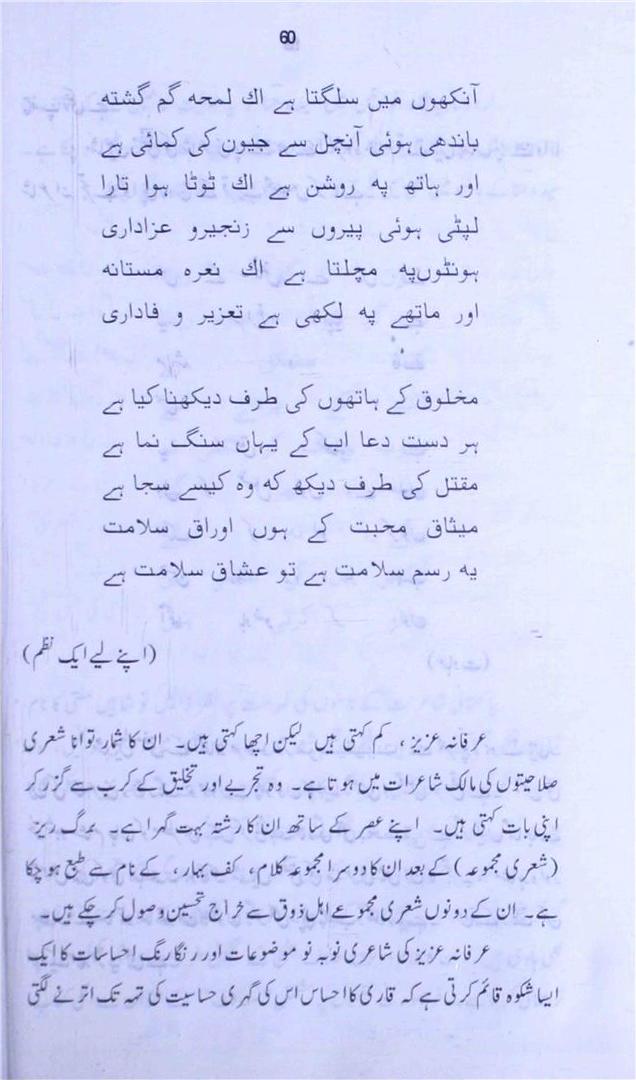 60
آنکھوں میں سلگتا ہے اک لمحہ گم گشتہ
باندھی ہوئی آنچل سے جیون کی کمائی ہے
اور ہاتھ پہ روشن ہے اک ٹوٹا ہوا تارا
لپٹی ہوئی پیروں سے زنجیرو عزاداری
ہونٹوںپہ مچلتا ہے اک نعرہ مستانہ
اور ماتھے پہ لکھی ہے تعزیر و فاداری
مخلوق کے ہاتھوں کی طرف دیکھناکیا ہے
ہر دست دعا اب کے یہاں سنگ نما ہے
مقتل کی طرف دیکھ کہ وہ کیسے سجا ہے
میثاق محبت کے ہوں اوراق سلامت
یہ رسم سلامت ہے تو عشاق سلامت ہے
(اپنے لیے ایک نظم)
عرفانہ عزیز، کم کہتی ہیں لیکن اچھا کہتی ہیں۔ ان کا شمار توانا شعری
صلاحیتوں کی مالک شاعرات میں ہوتا ہے۔ وہ تجربے اور تخلیق کے کرب سے گزر کر
اپنی بات کہتی ہیں۔ اپنے عصر کے ساتھ ان کا رشتہ بہت گہرا ہے۔ برگ ریز
(شعری مجموعہ) کے بعد ان کا دوسرا مجموعہ کلام، کف بہار، کے نام سے طبع ہو چکا
ہے۔ ان کے دونوں شعری مجموعے اہل ذوق سے خراج تحسین وصول کر چکے ہیں۔
عرفانہ عزیز کی شاعری نوبہ نو موضوعات اور رنگارنگ احساسات کا ایک
ایسا شکوہ قائم کرتی ہے کہ قاری کا احساس اس کی گہری حساسیت کی تہہ تک اترنے لگتی